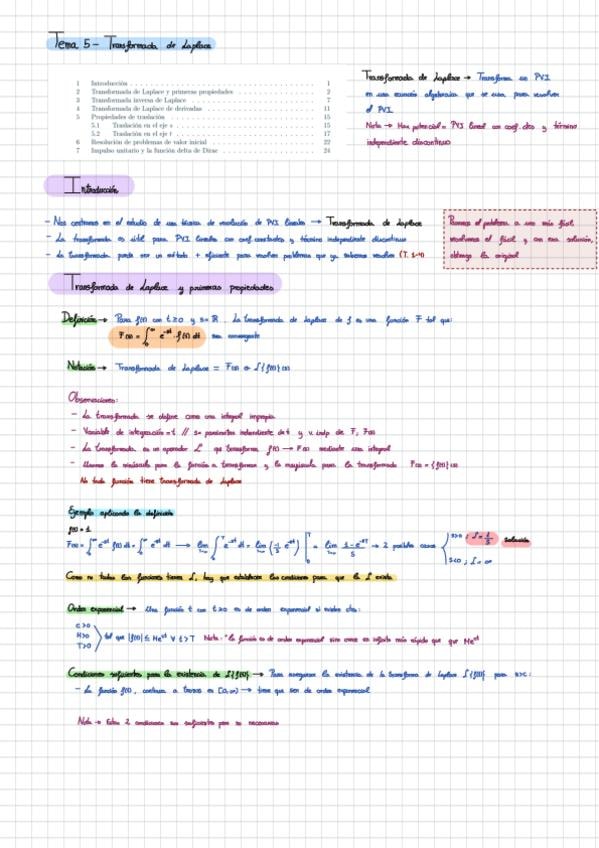 Tema 5 - Transformada de Laplace
1 Introducción . . . 1
2 Transformada de Laplace y primeras propiedades . . . 2
3 Transformada inversa de Laplace . . . 7
4 Transformada de Laplace de derivadas . . . 11
5 Propiedades de traslación . . . 15
5.1 Traslación en el eje s . . . 15
5.2 Traslación en el eje t . . . 17
6 Resolución de problemas de valor inicial . . . 22
7 Impulso unitario y la función delta de Dirac . . . 24
Transformada de Laplace → Transforma un PVI
en una ecuación algebraica que se usa para resolver
el PVI.
Nota → Max potencial = PVI lineal con coef. ctes y término
independiente discontinuo
Introducción
- Nos centramos en el estudio de una técnica de resolución de PVI lineales → Transformada de Laplace
- La transformada es útil para PVI lineales con coef. constantes y término independiente discontinuo
- La transformada puede ser un método + eficiente para resolver problemas que ya sabemos resolver (T. 1-4)
el problema a uno más fácil,
resolvemos el fácil y con esa solución,
obtengo la original
Transformada de Laplace y primeras propiedades
Definición → Para f(t) con t≥0 y s∈ℝ. La transformada de Laplace de f es una función F tal que:
F(s) = ∫₀^∞ e^-st · f(t) dt sea convergente
Notación → Transformada de Laplace = F(s) o L{f(t)}(s)
Observaciones:
- La transformada se define como una integral impropia
- Variable de integración = t // s = parámetro independiente de t y v. indp de F, F(s)
- La transformada es un operador L que transforma f(t) → F(s) mediante una integral
- la minúscula para la función a transformar y la mayúscula para la transformada F(s) = {f(t)}(s)
No toda función tiene transformada de Laplace
Ejemplo aplicando la definición
f(t) = 1
F(s) = ∫₀^∞ e^-st f(t) dt = ∫₀^∞ e^-st dt → lim ∫₀^T e^-st dt = lim (-1/s e^-st) |₀^T = lim 1-e^-sT / s → 2 posibles casos { s>0 ; L = 1/s Solución
s<0 ; L = ∞
Como no todas las funciones tienen L, hay que establecer las condiciones para que la L exista
Orden exponencial → Una función t con t≥0 es de orden exponencial si existen ctes:
c>0
M>0
T>0
tal que |f(t)| ≤ Me^ct ∀ t>T Nota: "la función es de orden exponencial si no crece en infinito más rápido que que Me^ct
Condiciones suficientes para la existencia de L{f(t)} → Para asegurarnos la existencia de la transforma de Laplace L{f(t)} para s>c:
- La función f(t), continua a trozos en [0,∞) → tiene que ser de orden exponencial
Nota → Estas 2 condiciones son suficientes pero no necesarias